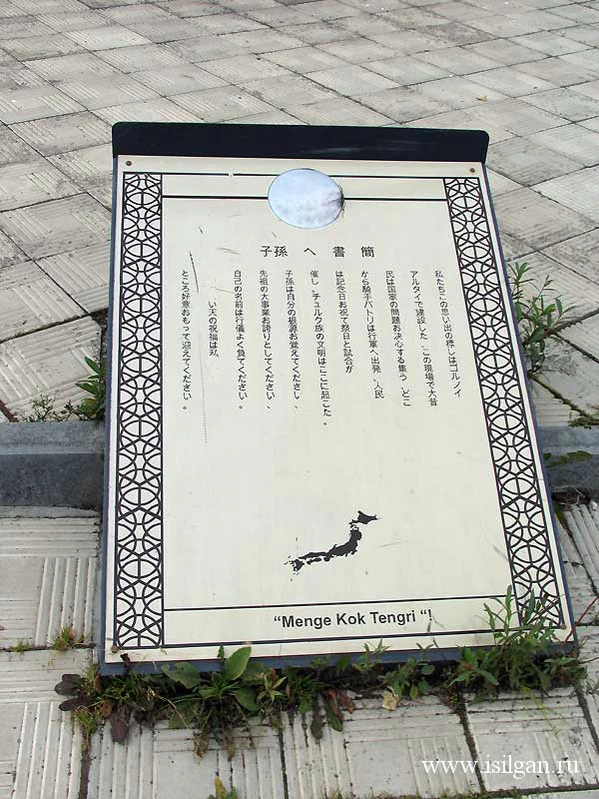 子孫 へ 書 簡
私たちこの思い出の標しはゴルノイ
アルタイで建設した。この現場で大昔
民は国家の問題お決心する集う。どこ
から騎手バトリは行軍へ出発。人民
は記念日お祝て祭日と試合が
催し。チュルク族の文明はここに起こた。
子孫は自分の根源お覚えてください、
先祖の大事業お誇りとしてください、
自己の名前は行儀よく負てください。
い天の祝福は
ところ好意おもって迎えてください。
"Menge Kok Tengri "!
www.isilgan.ru